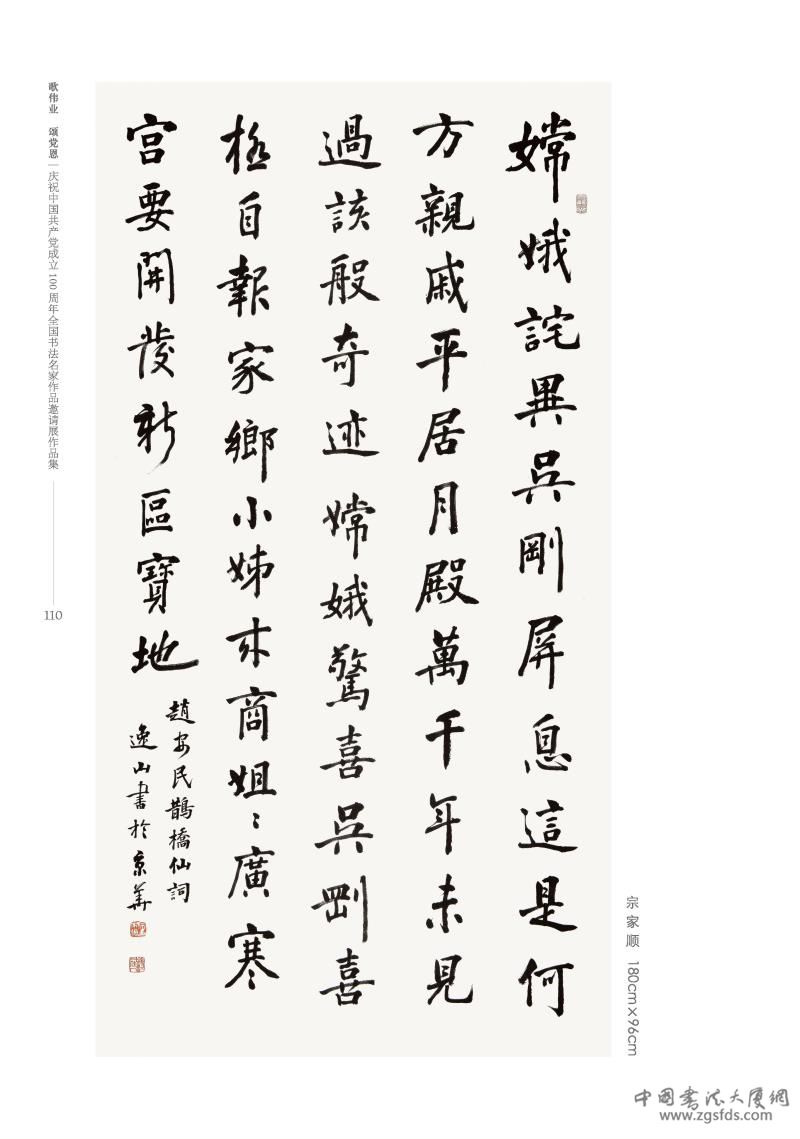 嫦娥詫異吳剛屏息這是何
方親戚平居月殿萬千年未見
過該般奇迹嫦娥驚喜吳剛喜
極自報家鄉小姊来商姐〻廣寒
宮要開發新區寶地
趙安民鵲橋仙詞
逸山書於京華
歌伟业 颂党恩|庆祝中国共产党成立100周年全国书法名家作品邀请展作品集
110
宗家顺 180cm×96cm
中国書法大厦網
www.zgsfds.com